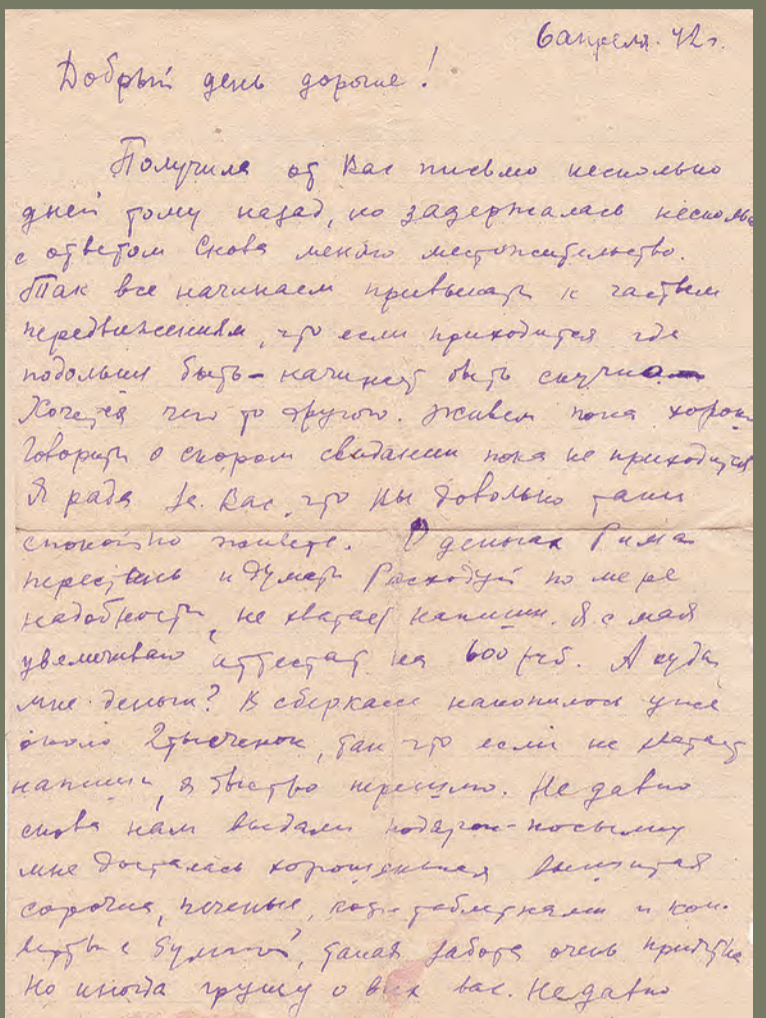 6 апреля. 42 г.
Добрый день дорогие!
Получила от Вас письмо несколько
дней тому назад, но задержалась несколь
с ответом Снова меняю местожительство.
Так все начинаем привыкать к частым
передвижениям, что если приходится где
подольше быть – начинает быть скучно –
Хочется чего то другого. Живем пока хорош
Говорить о скором свидании пока не приходится
Я рада за Вас, что Вы довольно таки
спокойно живете. О деньгах Рима
перестань и думать Расходуй по мере
надобности, не хватает напиши. Я с мая
увеличиваю аттестат на 600 руб. А куда
мне деньги? В сберкассе накопилось уже
около 2 тысченок, так что если не хватает
напиши, я быстро перешлю. Недавно
снова нам выдали подарок-посылку
мне досталась хорошенькая вышитая
сорочка, печенье, кофе таблетками и кон-
верты с бумагой, такая забота очень приятна
Но иногда грущу о всех вас. Недавно